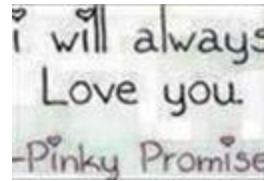 i will always
Love you.
-Pinky Promise